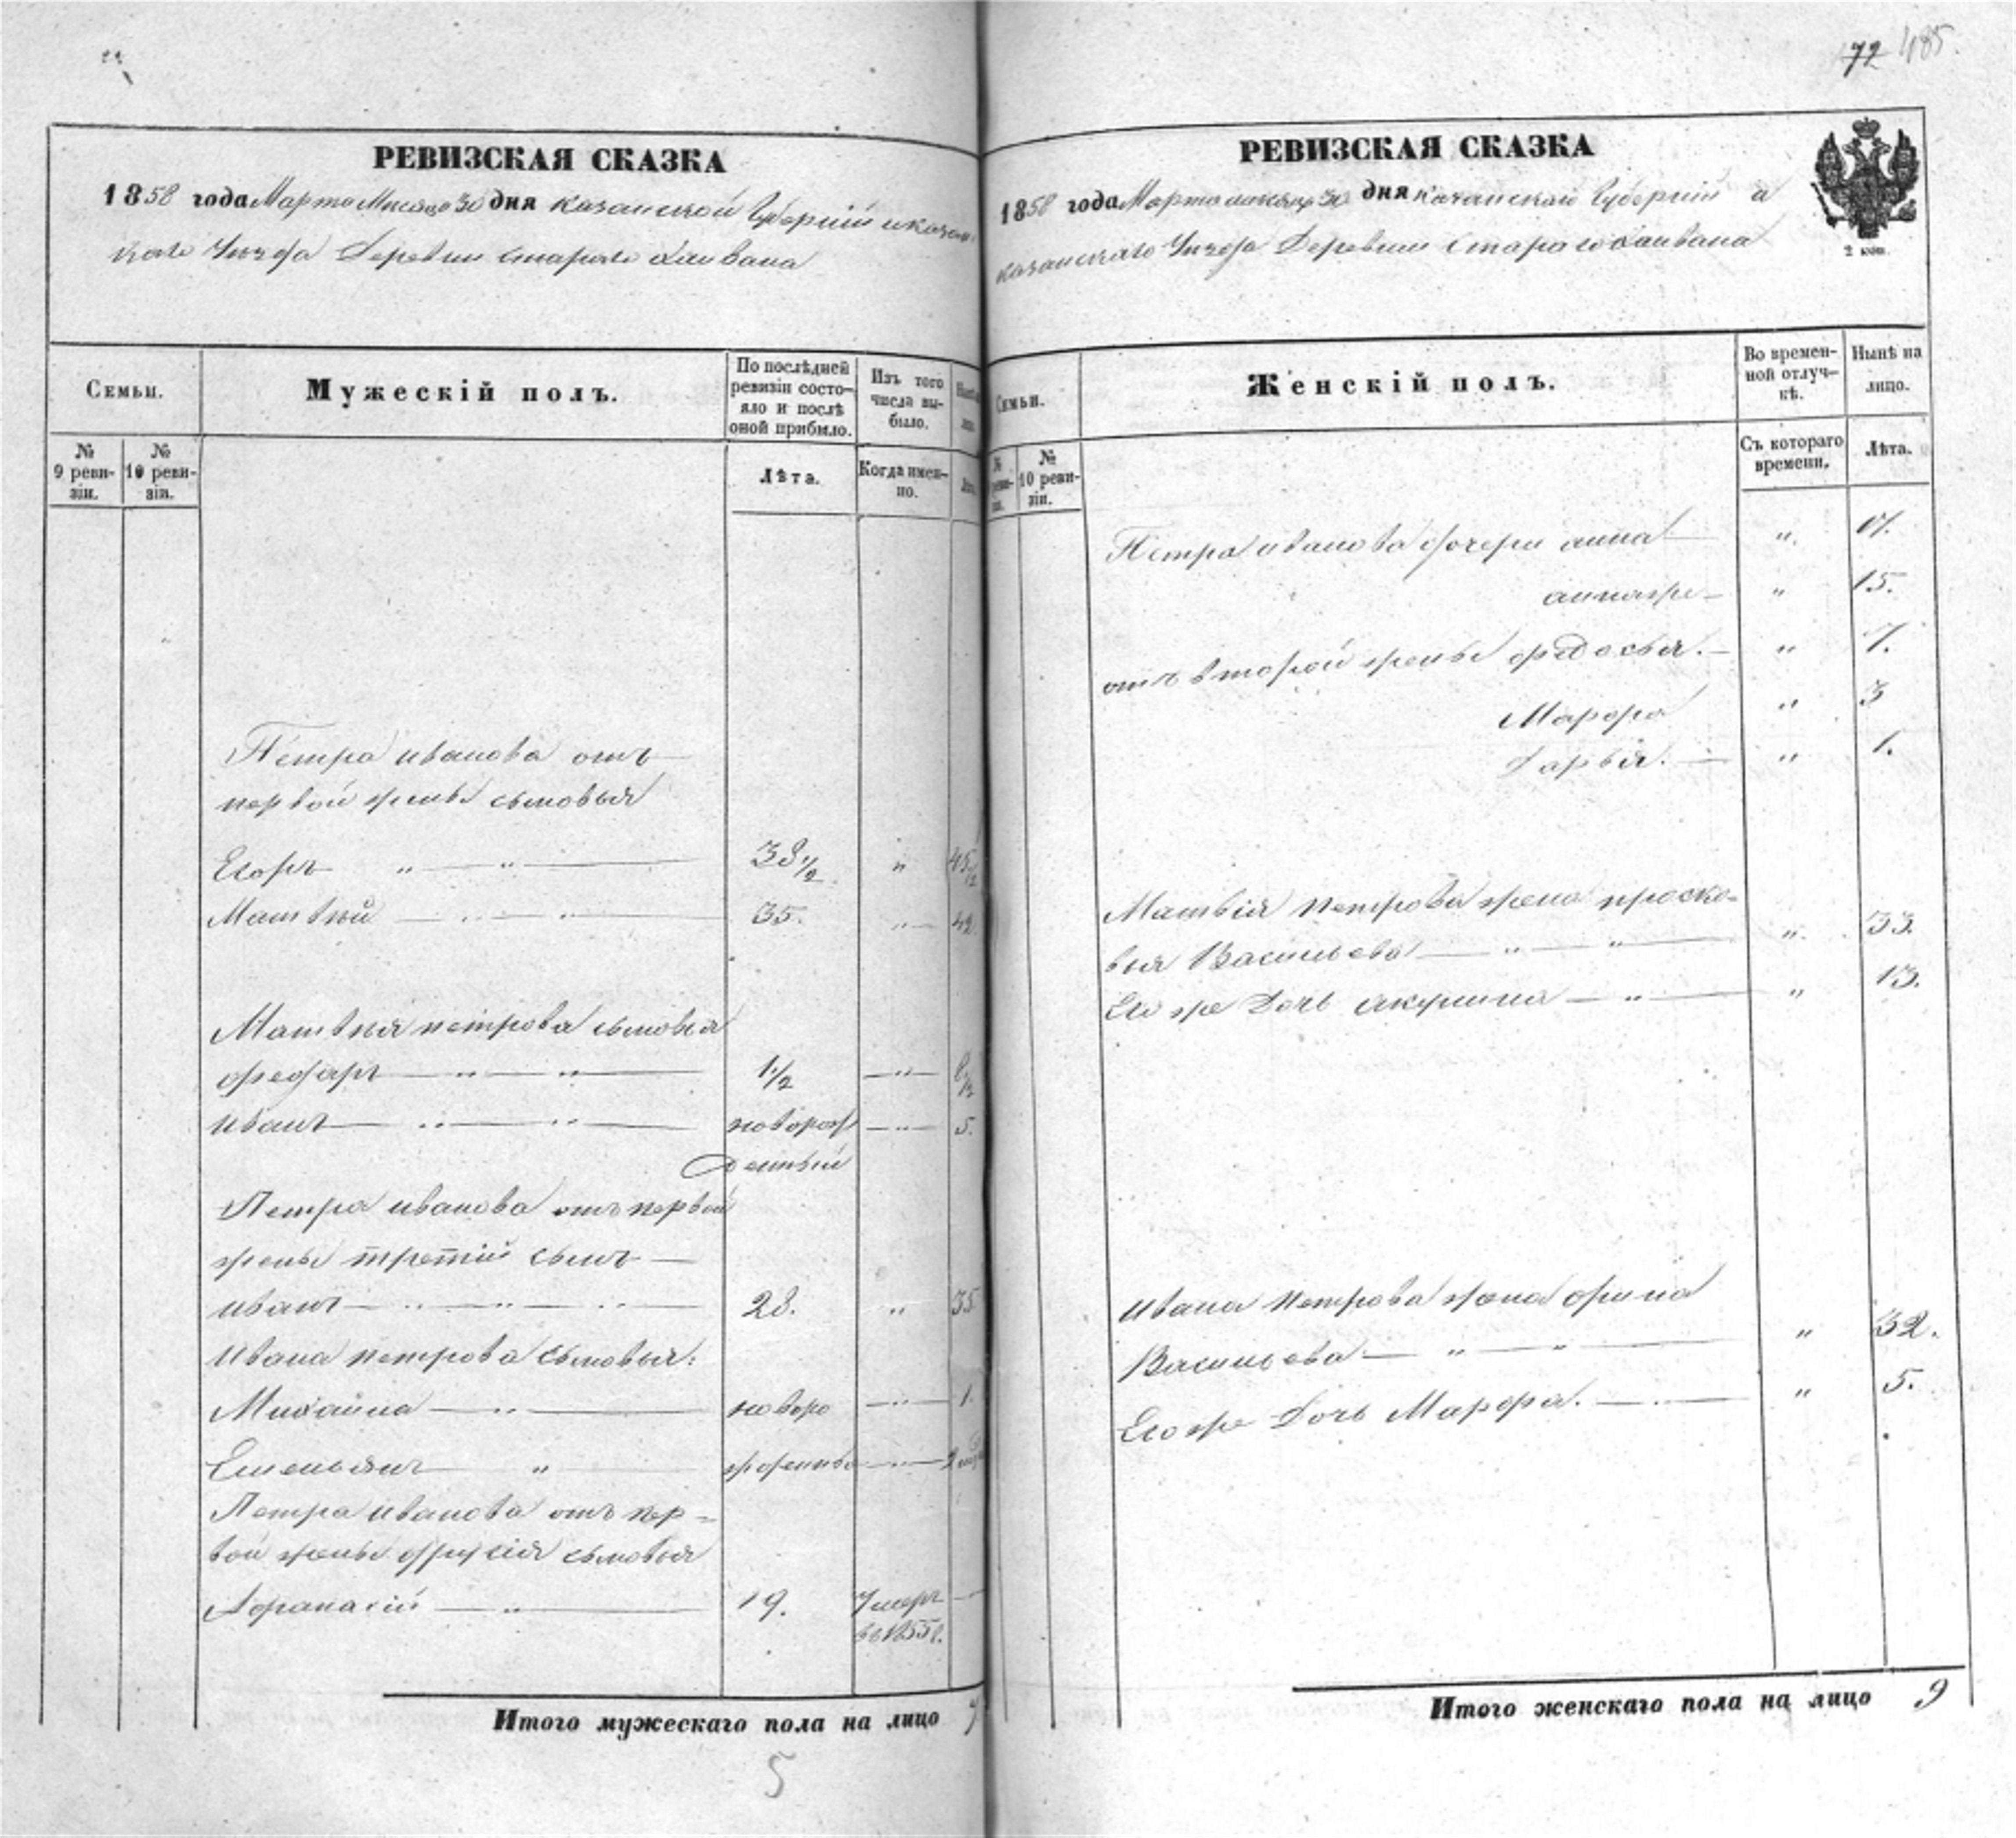 72 485.
РЕВИЗСКАЯ СКАЗКА
1858 года Марта Месяца 30 дня Казанской Губернiи и казан
каго Уезда Деревни Стараго
Семьи.
Мужескiй полъ.
По послѣдней ревизiи состо-
яло и послѣ
оной прибыло.
Изъ того
числа вы-
было.
№
9 реви-
зiи.
№
10 реви-
зiи.
Лѣта.
Когда имен-
но.
Петра иванова отъ
первой жены сыновья
Егоръ " " 38 1/2 " 45 1/2
Матвѣй " " 35. " 42
Матвѣя петрова сыновья
федоръ " " 1 1/2 " 8 1/2
иванъ " " новорож " 5.
денный
Петра иванова отъ первой
жены третiй сынъ
иванъ " " " 28. " 35
Ивана петрова сыновья:
Михайла " новоро " 1.
Емельянъ " жденны " 2
Петра иванова отъ пер=
вой жены другiя сыновья
Афанасiй " 19. Умеръ
въ 1855 г.
Итого мужескаго пола на лицо 7
5
РЕВИЗСКАЯ СКАЗКА
1858 года Марта месяца 30 дня Казанской Губернiи
казанскаго Уезда Деревни Стараго
2 коп.
Семьи.
Женскiй полъ.
Во времен-
ной отлуч-
кѣ.
Нынѣ на
лицо.
№
10 реви-
зiи.
Съ котораго
времени.
Лѣта.
Петра иванова дочери анна " 17.
" 15.
отъ второй жены федосья. " 7.
Марфа " 3
Дарья. " 1.
Матвiя петрова жена проско=
вья Васильева " " " 33.
Его же Дочь акулина " " 13.
Ивана петрова жена орина
Васильева " " " 32.
Его же Дочь Марфа. " " 5.
Итого женскаго пола на лицо 9